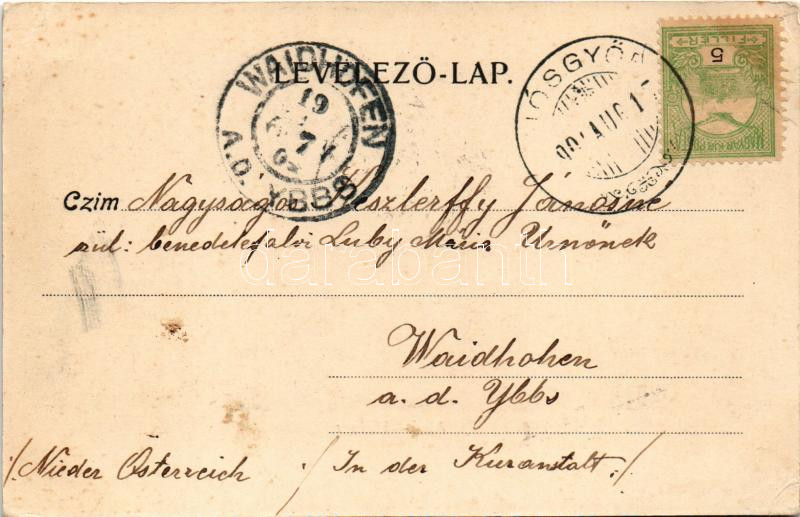 LEVELEZŐ-LAP.
WAIDHOFEN
A.D. YBBS
19
7
5
FILLÉR
MAGYAR KIR. POSTA
Czim Nagyságos Keszlerffy Jánosné
szül: benedekfalvi Luby Mária Urnőnek
darabanth
Waidhohen
a. d. Ybbs
/Nieder Österreich / In der Kuranstalt. /